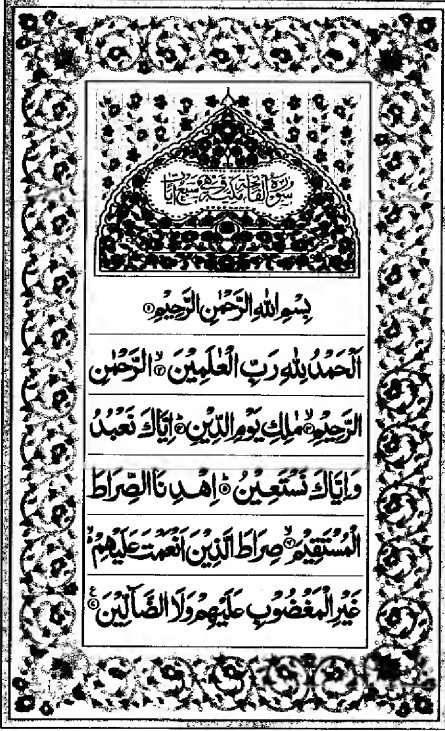 سورة الفاتحة مكية وهي سبع آيات
بِسْمِ اللهِ الرَّحْمٰنِ الرَّحِيْمِ ۝۱
اَلْحَمْدُ لِلّٰهِ رَبِّ الْعٰلَمِيْنَ ۙ۝۲ الرَّحْمٰنِ
الرَّحِيْمِ ۙ۝۳ مٰلِكِ يَوْمِ الدِّيْنِ ؕ۝۴ اِيَّاكَ نَعْبُدُ
وَ اِيَّاكَ نَسْتَعِيْنُ ؕ۝۵ اِهْدِنَا الصِّرَاطَ
الْمُسْتَقِيْمَ ۙ۝۶ صِرَاطَ الَّذِيْنَ اَنْعَمْتَ عَلَيْهِمْ ۙ
غَيْرِ الْمَغْضُوْبِ عَلَيْهِمْ وَلَا الضَّآلِّيْنَ ۝۷ ع